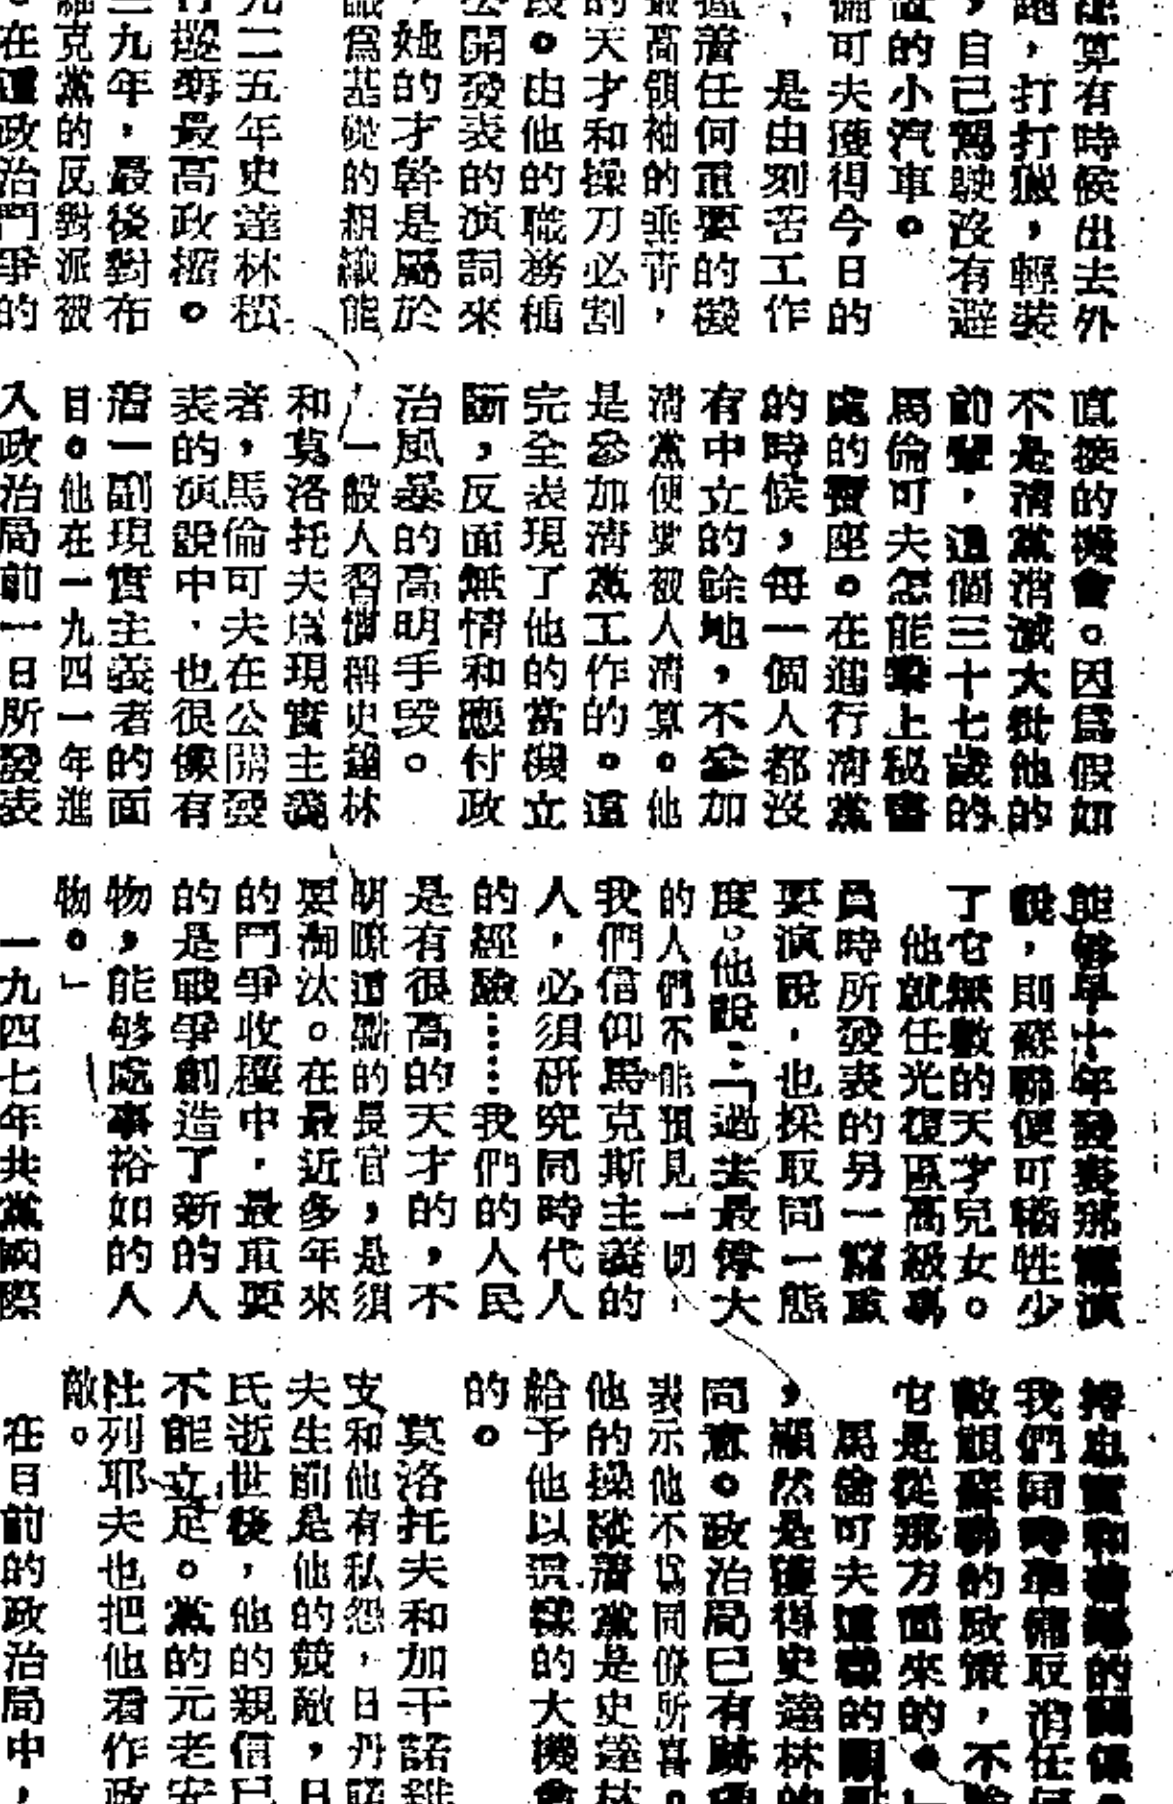 算有時候出去外
跑，打打獵，輕裝
，自己駕駛沒有避
的小汽車。
備可夫獲得今日的
，是由刻苦工作
着任何重要的機
最高領袖的垂青，
的天才和操刀必割
段。由他的職務種
公開發表的演詞來
，她的才幹是屬於
識爲基礎的組織能
元二五年史達林積
行最高政權。
三九年，最後對布
克黨的反對派被
在這政治鬥爭的
直接的機會。因爲假如
不是清黨消滅大批他的
前輩，這個三十七歲的
馬倫可夫怎能攀上秘書
處的寶座。在進行清黨
的時候，每一個人都沒
有中立的餘地，不參加
清黨便要被人清算。他
是參加清黨工作的。這
完全表現了他的當機立
斷，反面無情和應付政
治風暴的高明手段。
一般人習慣稱史達林
和莫洛托夫爲現實主義
者，馬倫可夫在公開發
表的演說中，也很像有
着一副現實主義者的面
目。他在一九四一年進
入政治局前一日所發表
能够早十年發表那篇演
說，則蘇聯便可犧牲少
了它無數的天才兒女。
他就任光復區高級專
員時所發表的另一篇重
要演說，也採取同一態
度。他說：「過去最偉大
的人們不能預見一切，
我們信仰馬克斯主義的
人，必須研究同時代人
的經驗……我們的人民
是有很高的天才的，不
明瞭這點的長官，是須
要淘汰。在最近多年來
的鬥爭收穫中，最重要
的是戰爭創造了新的人
物，能够處事裕如的人
物。」
一九四七年共黨國際
持忠實和的關係。
我們同時準備取消任何
敵視蘇聯的政策，不
它是從那方面來的。」
馬倫可夫這樣的
，顯然是獲得史達林的
同意。政治局已有跡
表示他不爲同僚所喜。
他的操縱着黨是史達林
給予他以這樣的大機會
的。
莫洛托夫和加干諾維
支和他有私怨，日丹諾
夫生前是他的競敵，日
氏逝世後，他的親信已
不能立足。黨的元老安
杜列耶夫也把他看作政
敵。
在目前的政治局中，